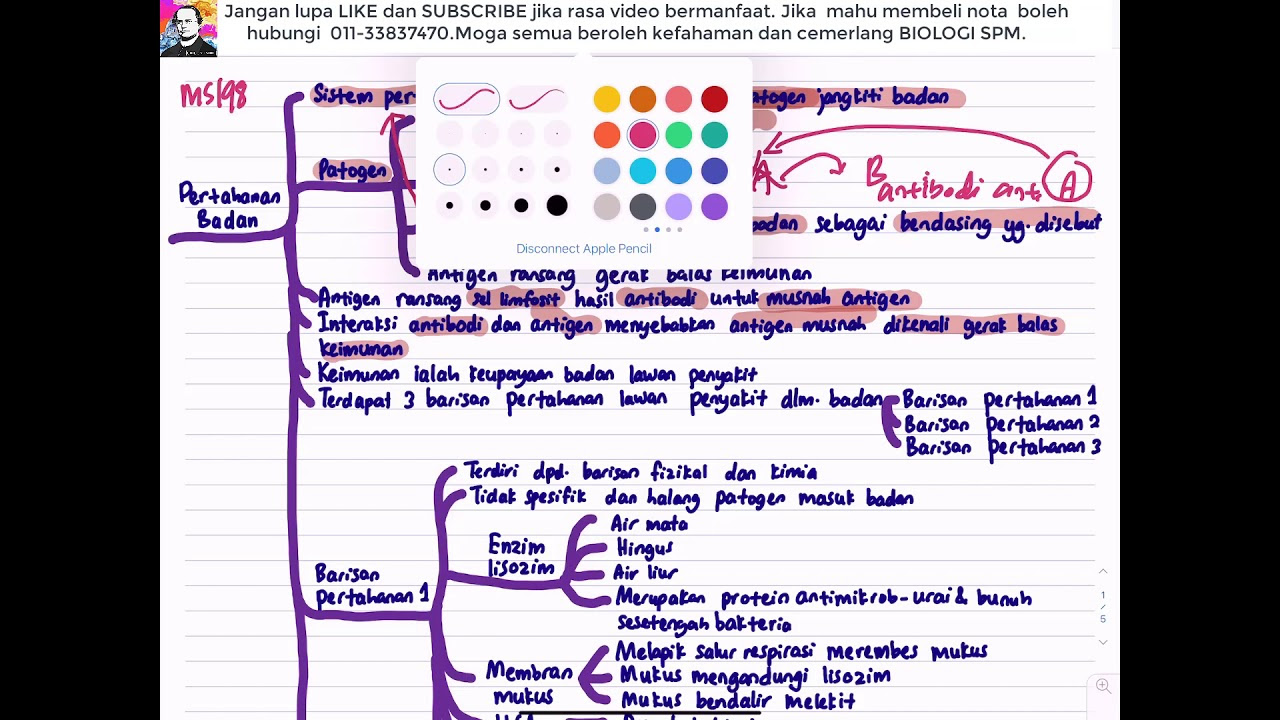 Jangan lupa LIKE dan SUBSCRIBE jika rasa video bermanfaat. Jika mahu membeli nota boleh
hubungi 011-33837470.Moga semua beroleh kefahaman dan cemerlang BIOLOGI SPM.
MS198
Sistem per
atogen jangkiti badan
Patogen
A
B
antibodi ant
A
Pertahanan
Badan
badan sebagai bendasing yg. disebut
Disconnect Apple Pencil
Antigen ransang gerak balas keimunan
Antigen ransang sel limfosit hasil antibodi untuk musnah antigen
Interaksi antibodi dan antigen menyebabkan antigen musnah dikenali gerak balas
keimunan
Keimunan ialah keupayaan badan lawan penyakit
Terdapat 3 barisan pertahanan lawan penyakit dlm. badan
Barisan pertahanan 1
Barisan pertahanan 2
Barisan pertahanan 3
Terdiri dpd. barisan fizikal dan kimia
Tidak spesifik dan halang patogen masuk badan
Enzim
lisozim
Air mata
Hingus
Air liur
Merupakan protein antimikrob-urai & bunuh
sesetengah bakteria
Barisan
pertahanan 1
1
/
5
Membran
mukus
Melapik salur respirasi merembes mukus
Mukus mengandungi lisozim
Mukus bendalir melekit